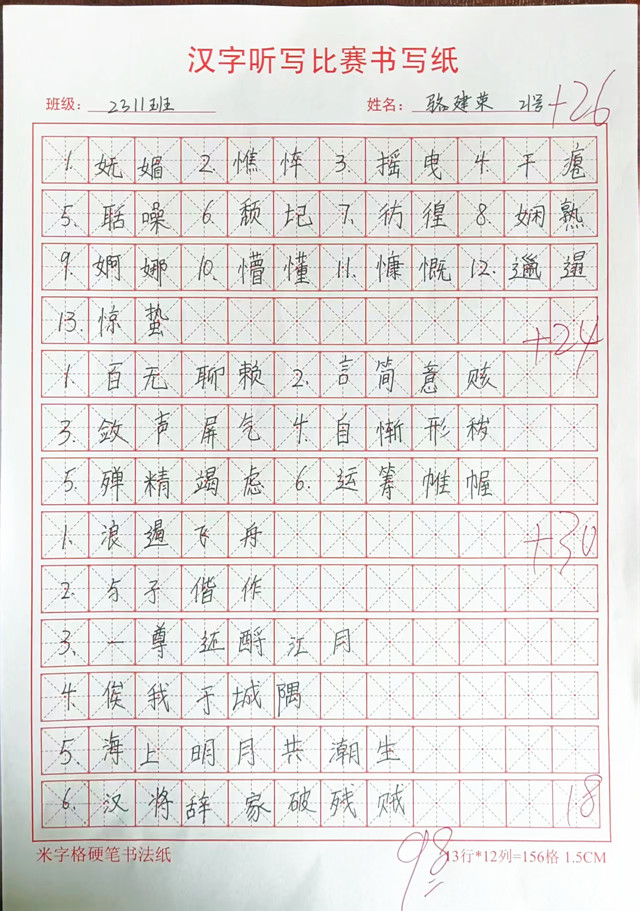 汉字听写比赛书写纸
班级: 2311班 姓名: 骆建荣 21号 +26
1. 妩媚 2. 憔悴 3. 摇曳 4. 干瘪
5. 聒噪 6. 颓圮 7. 彷徨 8. 娴熟
9. 婀娜 10. 懵懂 11. 慷慨 12. 邋遢
13. 惊蛰
+24
1. 百无聊赖 2. 言简意赅
3. 敛声屏气 4. 自惭形秽
5. 殚精竭虑 6. 运筹帷幄
1. 浪遏飞舟
+30
2. 与子偕作
3. 一尊还酹江月
4. 俟我于城隅
5. 海上明月共潮生
6. 汉将辞家破残贼 18
98
米字格硬笔书法纸 13行*12列=156格 1.5CM